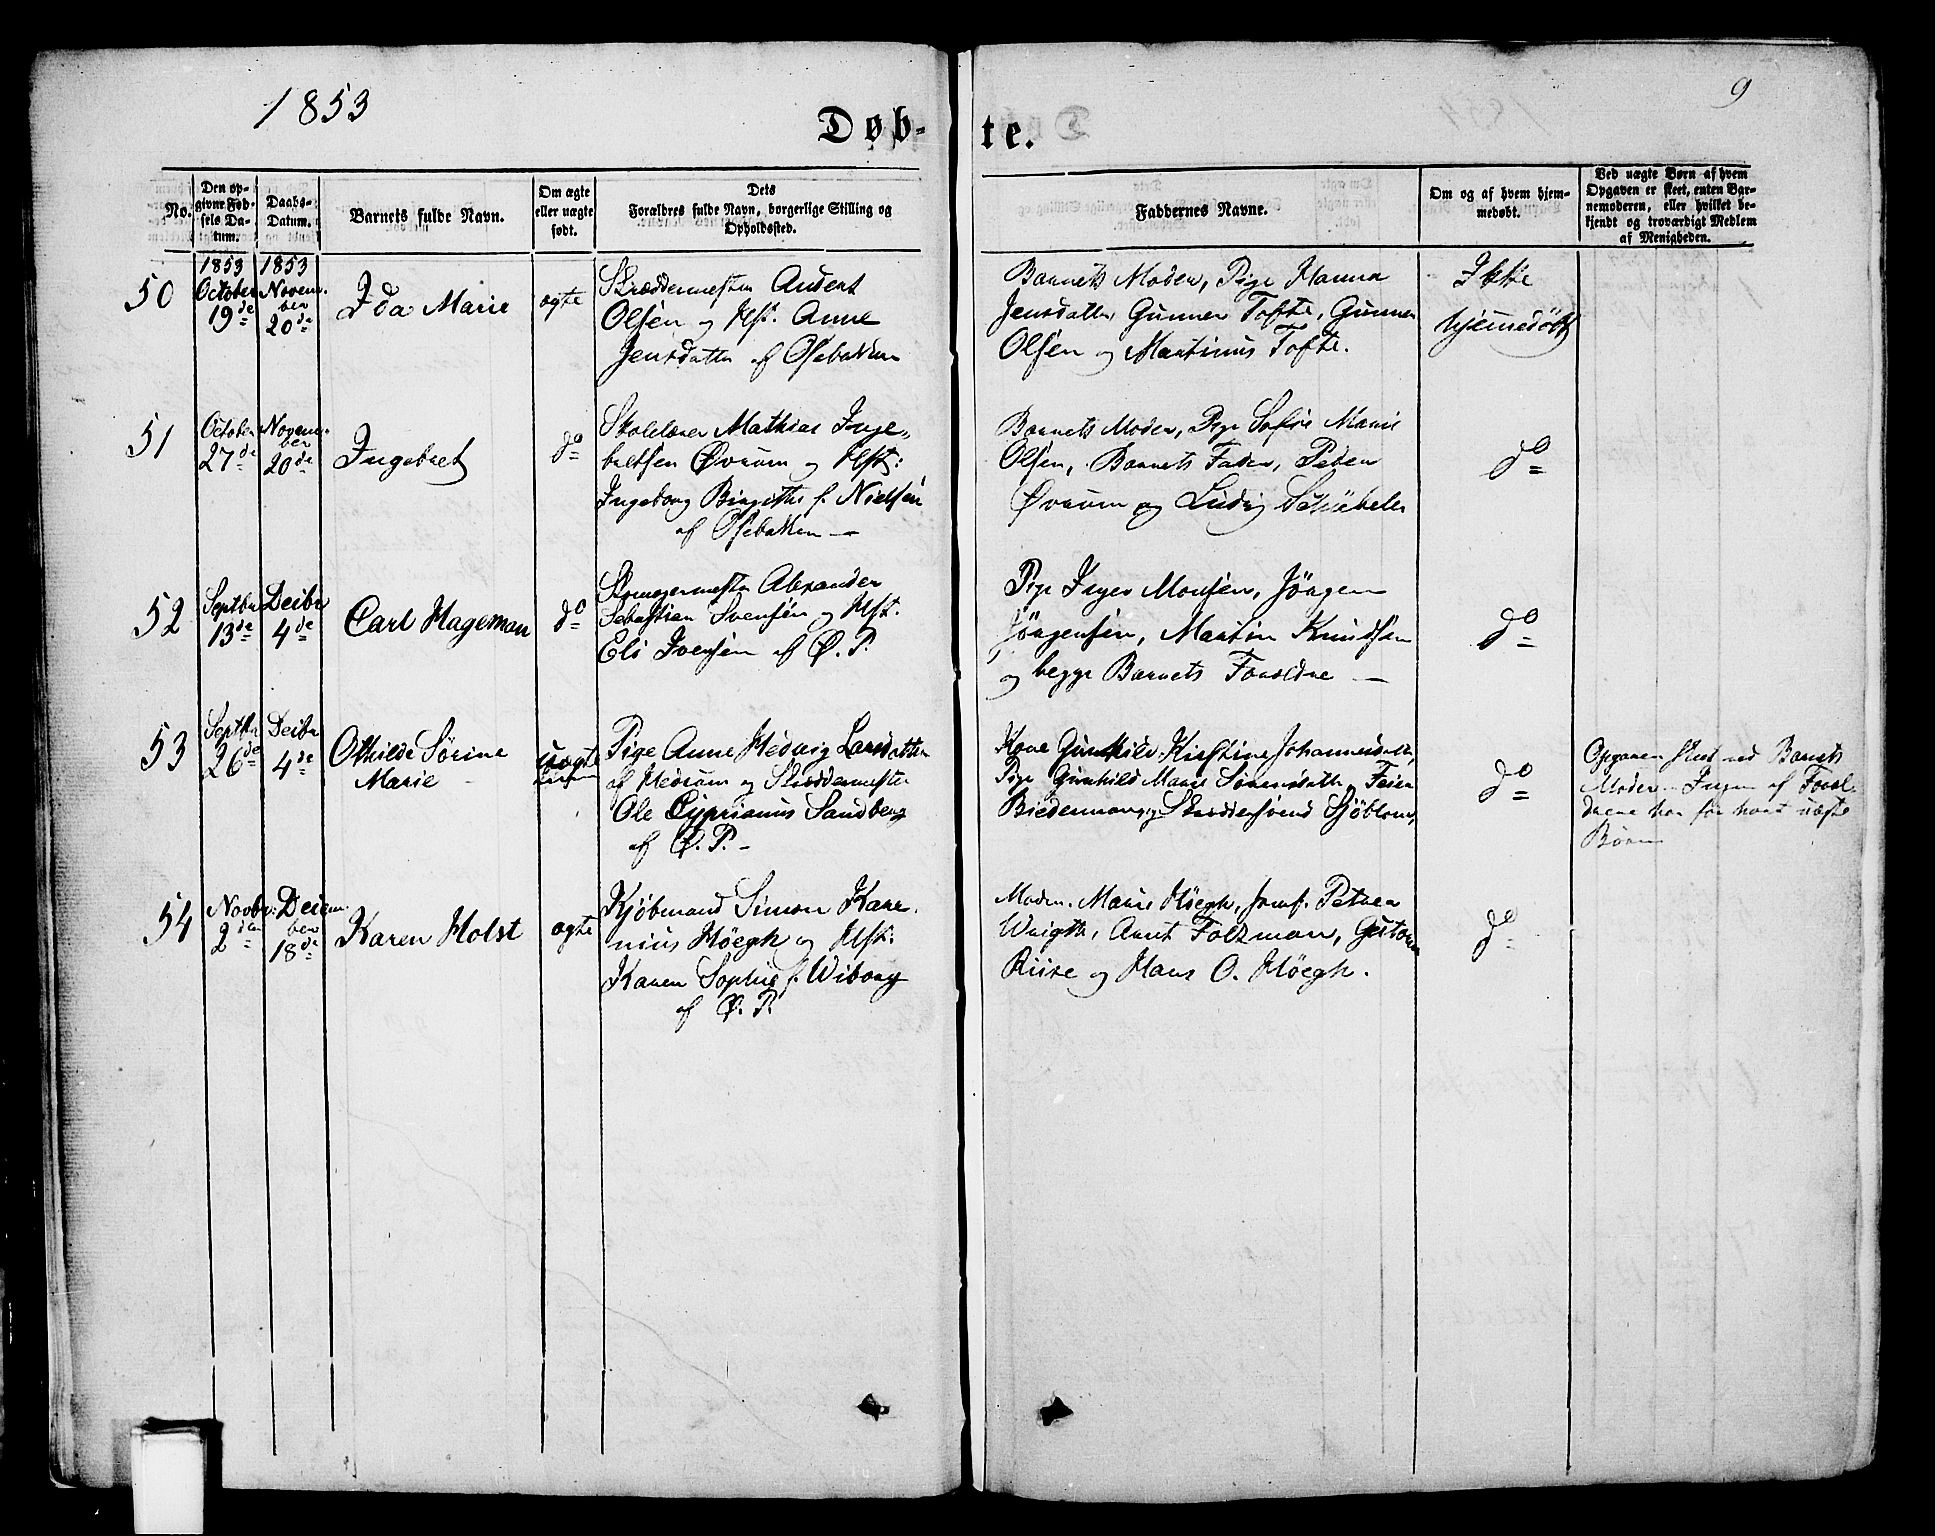 1853
9
Døb-
te.
No.
Den op-
givne Fød-
sels Da-
tum.
Daabs-
Datum.
Barnets fulde Navn.
Om ægte
eller uægte
født.
Dets
Forældres fulde Navn, borgerlige Stilling og
Opholdssted.
Faddernes Navne.
Om og af hvem hjem-
medøbt.
Ved uægte Børn af hvem
Opgaven er skeet, enten Bar-
nemoderen, eller hvilket be-
kjendt og troværdigt Medlem
af Menigheden.
50
1853
October
19de
1853
Novem-
ber
20de
Ida Marie
ægte
Skræddermester Anders
Olsen og Hst. Anne
Jensdatter af Osebakken
Barnets Moder, Pige Hanna
Jensdatter, Gunner Tofte, Gunner
Olsen og Martinus Tofte.
Ikke
hjemmedöbt
51
October
27de
Novem-
ber
20de
Ingebret
do
Skolelærer Mathias Inge-
bretsen Øvrum og Hst:
Ingeborg Birgitte f. Nielsen
af Osebakken —
Barnets Moder, Pige Sofie Marie
Olsen, Barnets Fader, Peder
Øvrum og Ludvig Schübeler
do
52
Septbr
13de
Decbr
4de
Carl Hageman
do
Skomagermester Alexander
Sebastian Svensen og Hst.
Elis Iversen af Ø. P.
Pige Inger Monsen, Jörgen
Jörgensen, Martin Knudsen
og begge Barnets Forældre —
do
53
Septbr
26de
Decbr
4de
Othilde Sörine
Marie
uægte
Pige Anne Hedvig Larsdatter
af Hedrum og Skræddermester
Ole Cyprianus Sandberg
af Ø. P. -
Kone Gunhild Kirstine Johannesdatter,
Pige Gunhild Marie Simonsdatter,
Biedermann, Skræddersvend Sjöblom,
do
Opgaven skeet ved Barnets
Moder. Ingen af Foræl-
drene har før havt uægte
Børn
54
Novbr.
2den
Decem-
ber
18de
Karen Holst
ægte
Kjöbmand Simon Kar-
nius Höegh og Hst.
Karen Sophie f. Wiborg
af Ø. P.
Moder. Marie Höegh, Jomf. Petrea
Wrigth, Annt Foltzman, Gustav
Riise og Hans O. Höegh.
do